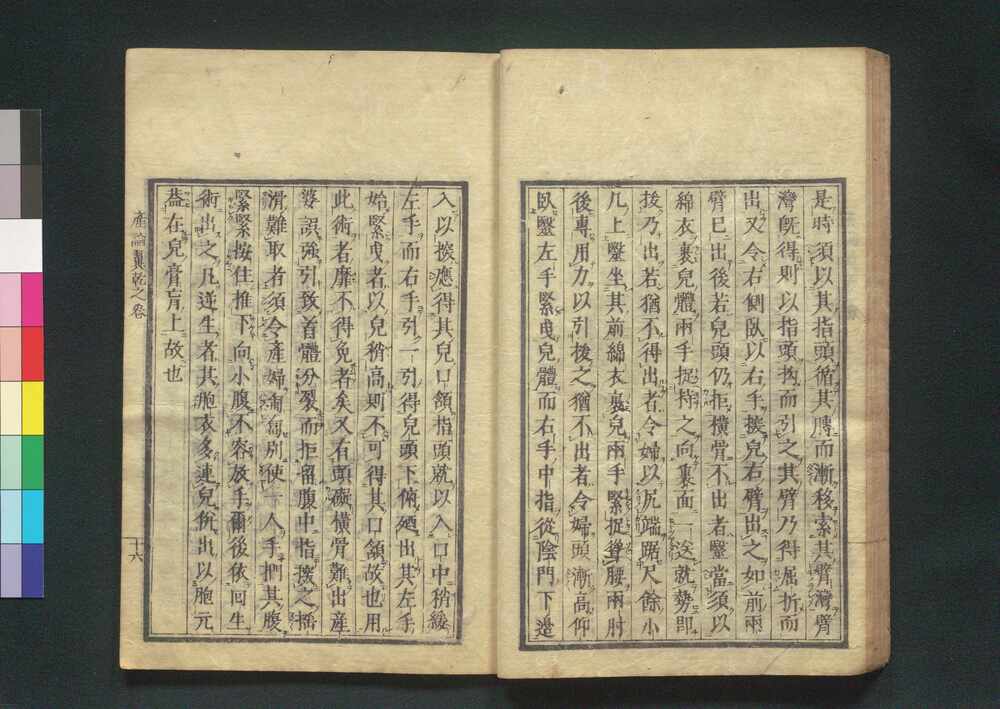 是時須以其指頭循其膊而漸移索其臂灣臂
灣既得則以指頭抅而引之其臂乃得屈折而
出又令右側臥以右手接兒右臂出之如前兩
臂已出後若兒頭仍拒橫骨不出者毉當須以
綿衣裹兒體兩手捉持之向裏面一送就勢即
拔乃出若猶不得出者令婦以尻端踞尺餘小
几上毉坐其前綿衣裹兒兩手緊捉腰兩肘
後專用力以引拔之猶不出者令婦頭漸高仰
臥毉左手緊曳兒體而右手中指從陰門下邊
入以按應得其兒口頷指頭就以入口中稍緩
左手而右手引一引得兒頭下俯廼出其左手
婦緊曳者以兒稍高則不可得其口頷故也用
此術者靡不得免者矣又有頭礙橫骨難出產
婆誤強引致首體分裂而拒留腹中指撥之搖
滑難取者須令產婦匍匐別使一人手捫其腹
緊緊按住推下向小腹不容放手爾後依回生
術出之凡逆生者其胞衣多連兒俱出以胞元
葢在兒膏肓上故也
產論翼乾之卷
十六